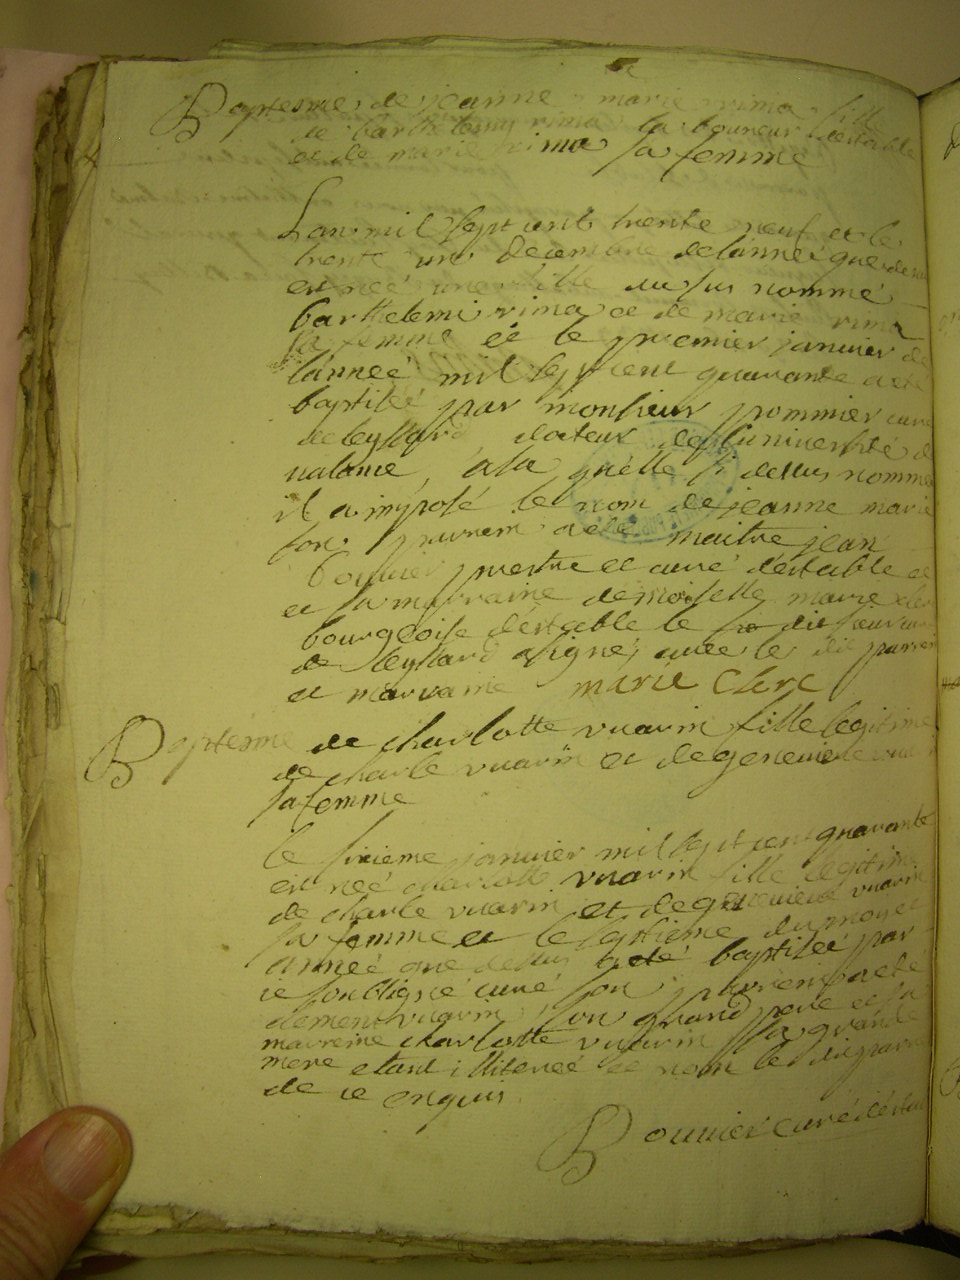 Baptesme de jeanne marie rima fille
de barthelemy rima laboureur destable
et de marie rima sa femme
Lan mil sept cent trente neuf et le
trente un decembre delanneé que dessus
est neé une fille du sus nommé
barthelemi rima et de marie rima
sa femme et le premier janvier de
lanneé mil sept cent quarante a eté
baptiseé par monsieur pommier curé
de leyssard docteur de luniversité de
valance, a la quelle si dessus nommé
il a imposé le nom de jeanne marie
son parrein a eté maitre jean
Bouvier prestre et curé destable et
et sa marraine demoiselle marie clerc
bourgeoise destable le dit sieur curé
de leyssard a signé avec le dit parrein
et marraine marie Clerc
Baptesme de charlotte vuarin fille legitime
de charle vuarin et de genevieve vuarin
sa femme
le sixieme janvier mil sept cent quarante
est neé charlotte vuarin fille legitime
de charle vuarin et de genevieve vuarin
sa femme et le septieme du moy et
anneé que dessus a eté baptiseé par
ie soubsigné curé son parrein a eté
clement vuarin son grand pere et sa
marreine charlotte vuarin sa grande
mere etant illitereé et non le dit parrein
de ce enquis
Bouvier curé destable